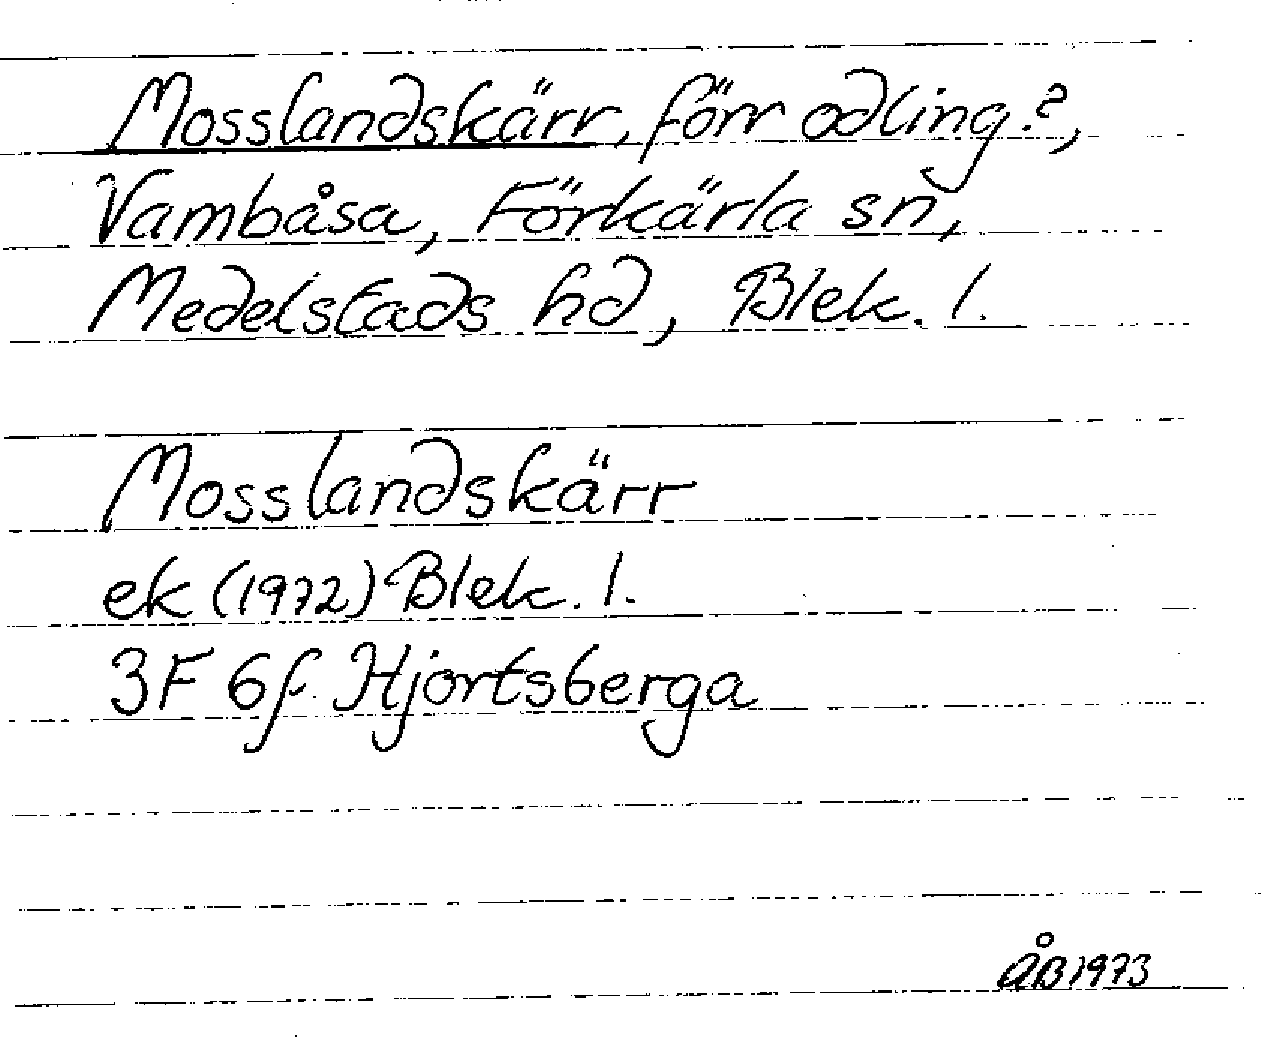 Mosslandskärr, förr odling?,
Vambåsa, Förkärla sn,
Medelstads hd, Blek. l.
Mosslandskärr
ek (1972) Blek. l.
3F 6f Hjortsberga
ÅB 1973